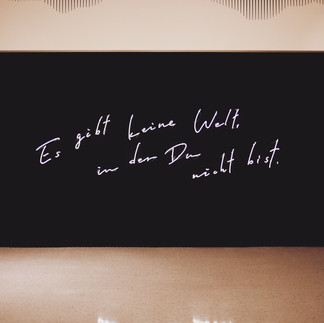 Es gibt keine Welt,
in der Du
nicht bist.